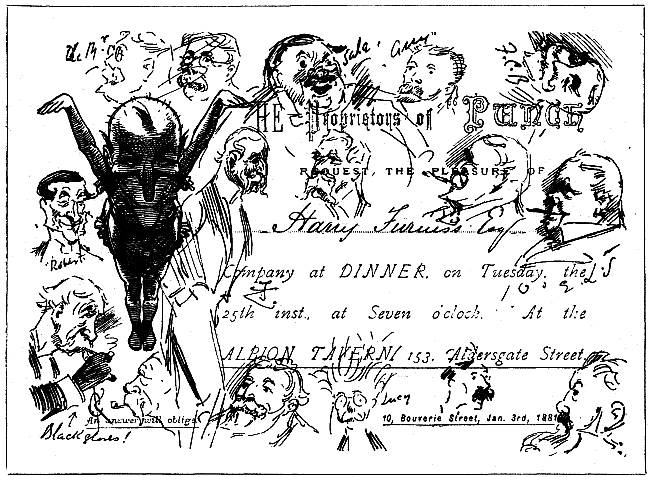 Sala!
THE Proprietors of PUNCH
REQUEST, THE PLEASURE OF
Harry Furniss Esq
Company at DINNER, on Tuesday, the
25th inst., at Seven o'clock. At the
ALBION TAVERN, 153, Aldersgate Street.
Robert
Lucy
An answer will oblige
10, Bouverie Street, Jan. 3rd, 1881
Black gloves!